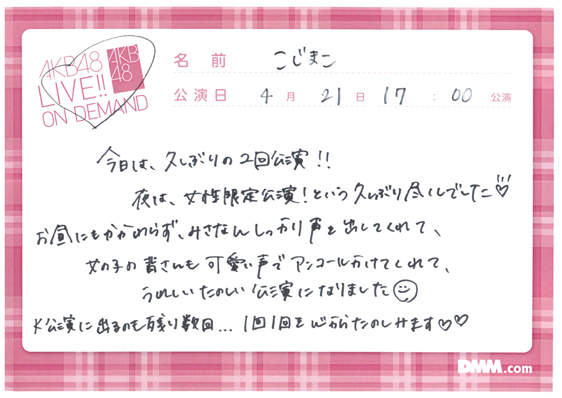 AKB48
LIVE!!
ON DEMAND
AKB
48
名前 こじまこ
公演日 4月21日17:00公演
今日は、久しぶりの2回公演!!
夜は、女性限定公演!という久しぶり尽くしでした♡
お昼にもかかわらず、みさなんしっかり声を出してくれて、
女の子の皆さんも可愛い声でアンコールかけてくれて、
うれしいたのしい公演になりました☺
K公演に出るのも残り数回...1回1回を心からたのしみます♡♡
DMM.com